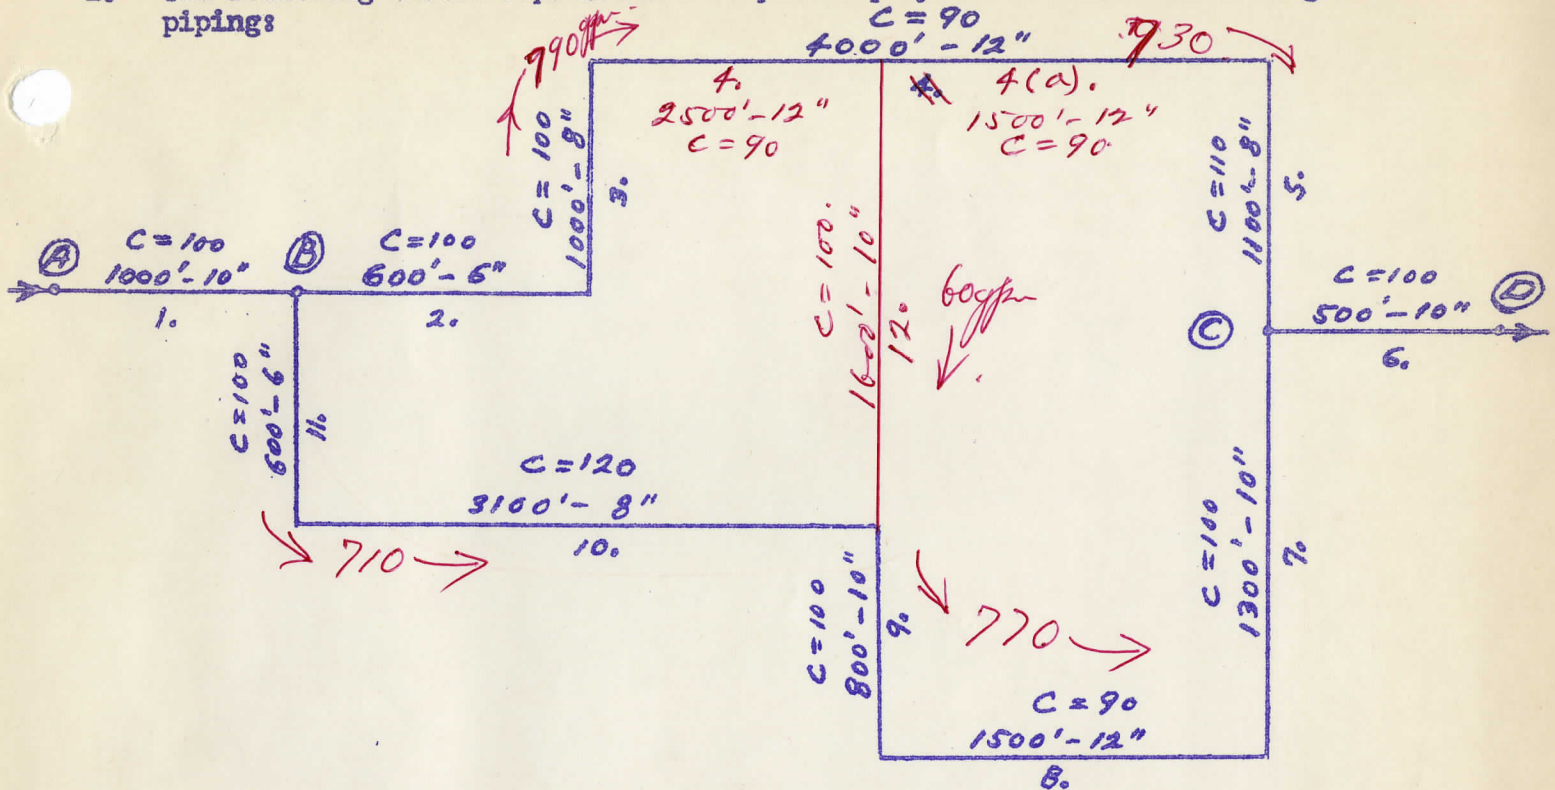 piping:
C = 90
4000' - 12"
990 gpm
930
4.
2500' - 12"
C = 90
4.
4(a).
1500' - 12"
C = 90
C = 100
1000' - 8"
3.
C = 110
1100' - 8"
5.
A
C = 100
1000' - 10"
1.
B
C = 100
600' - 6"
2.
C = 100.
1600' - 10"
12.
60 gpm
C
C = 100
500' - 10"
6.
D
C = 100
600' - 6"
11.
C = 120
3100' - 8"
10.
710
C = 100
800' - 10"
9.
770
C = 100
1300' - 10"
7.
C = 90
1500' - 12"
8.